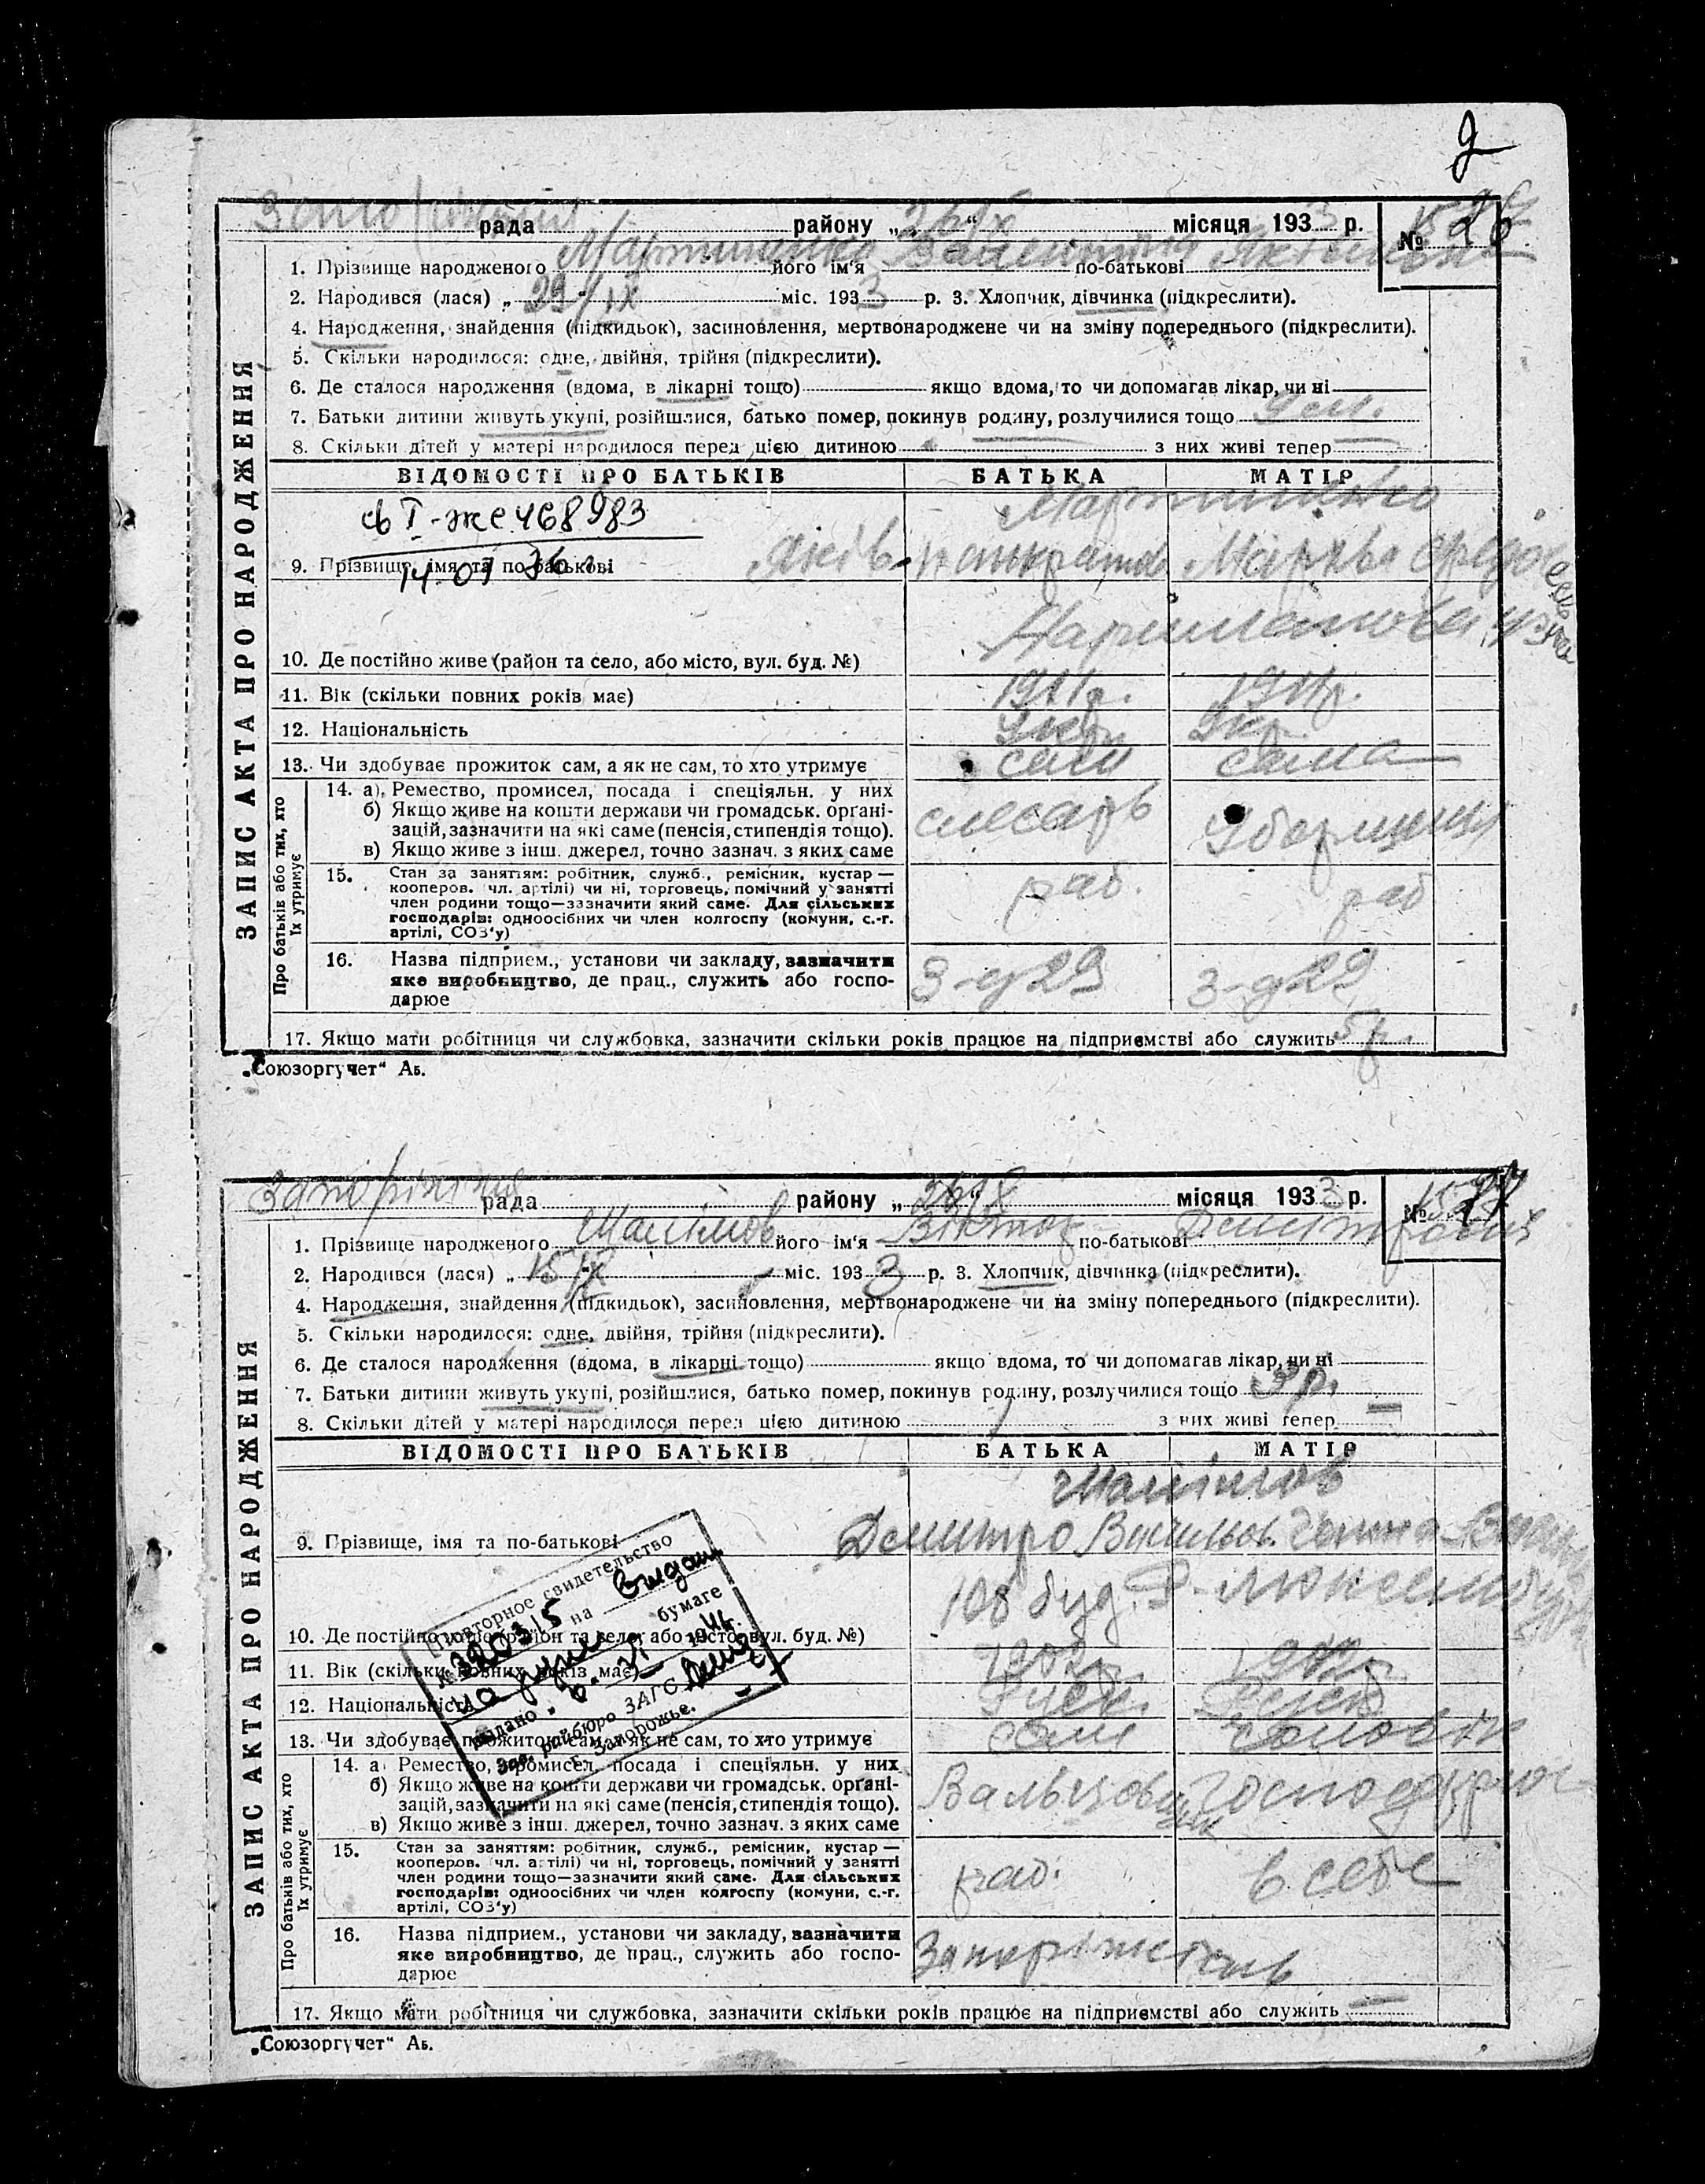 2
рада района „ “ місяця 1933 р. № 26
1. Прізвище народженого Мартиненко його ім'я Валентина по-батькові
2. Народився (лася) „ 29/IX міс. 1933 р. 3. Хлопчик, дівчинка (підкреслити).
4. Народження, знайдення (підкидьок), засиновлення, мертвонароджене чи на зміну попереднього (підкреслити).
5. Скільки народилося: одне, двійня, трійня (підкреслити).
6. Де сталося народження (вдома, в лікарні тощо) якщо вдома, то чи допомагав лікар, чи ні
7. Батьки дитини живуть укупі, розійшлися, батько помер, покинув родину, розлучилися тощо
8. Скільки дітей у матері народилося перед цією дитиною з них живі тепер
ЗАПИС АКТА ПРО НАРОДЖЕННЯ
ВІДОМОСТІ ПРО БАТЬКІВ БАТЬКА МАТІР
св I-же 468983
14-07 36 г.
Мартиненко
9. Прізвище, імя та по-батькові Яків Панкратов Марія
10. Де постійно живе (район та село, або місто, вул. буд. №)
11. Вік (скільки повних років має) 1911р. 1911р.
12. Національність Укр. Укр.
13. Чи здобуває прожиток сам, а як не сам, то хто утримує сам сама
Про батьків або тих, хто їх утримує
14. а) Ремество, промисел, посада і спеціяльн. у них
б) Якщо живе на кошти держави чи громадськ. органі-
зацій, зазначити на які саме (пенсія, стипендія тощо).
в) Якщо живе з інш. джерел, точно зазнач. з яких саме
слесарь Уборщиця
15. Стан за заняттям: робітник, служб., ремісник, кустар —
кооперов. чл. артілі) чи ні, торговець, помічний у занятті
член родини тощо—зазначити який саме. Для сільських
господарів: одноосібних чи член колгоспу (комуни, с.-г.
артілі, СОЗ'у)
раб. раб
16. Назва підприєм., установи чи закладу, зазначити
яке виробництво, де прац., служить або госпо-
дарює
З-д 29 З-д 29
17. Якщо мати робітниця чи службовка, зазначити скільки років працює на підприємстві або служить 5р.
„Союзоргучет“ Аб.
рада району „ “ місяця 1933 р. №
1. Прізвище народженого його ім'я Віктор по-батькові
2. Народився (лася) „ 15/IX міс. 1933 р. 3. Хлопчик, дівчинка (підкреслити).
4. Народження, знайдення (підкидьок), засиновлення, мертвонароджене чи на зміну попереднього (підкреслити).
5. Скільки народилося: одне, двійня, трійня (підкреслити).
6. Де сталося народження (вдома, в лікарні тощо) якщо вдома, то чи допомагав лікар, чи ні
7. Батьки дитини живуть укупі, розійшлися, батько помер, покинув родину, розлучилися тощо 3 р.
8. Скільки дітей у матері народилося перед цією дитиною з них живі тепер —
ЗАПИС АКТА ПРО НАРОДЖЕННЯ
ВІДОМОСТІ ПРО БАТЬКІВ БАТЬКА МАТІР
9. Прізвище, імя та по-батькові Дмитро Васильов.
108 буд. Р-Люксембург
10. Де постійно живе (район та село, або місто, вул. буд. №)
11. Вік (скільки повних років має)
12. Національність Руськ. Руськ
13. Чи здобуває прожиток сам, а як не сам, то хто утримує сам чоловік
Повторное свидетельство
на бумаге
выдано
Зав. райбюро ЗАГС
г. Запорожье.
Про батьків або тих, хто їх утримує
14. а) Ремество, промисел, посада і спеціяльн. у них
б) Якщо живе на кошти держави чи громадськ. органі-
зацій, зазначити на які саме (пенсія, стипендія тощо).
в) Якщо живе з інш. джерел, точно зазнач. з яких саме
Вальцовщик
15. Стан за заняттям: робітник, служб., ремісник, кустар —
кооперов. чл. артілі) чи ні, торговець, помічний у занятті
член родини тощо—зазначити який саме. Для сільських
господарів: одноосібних чи член колгоспу (комуни, с.-г.
артілі, СОЗ'у)
раб. в себе
16. Назва підприєм., установи чи закладу, зазначити
яке виробництво, де прац., служить або госпо-
дарює
Запоріжсталь
17. Якщо мати робітниця чи службовка, зазначити скільки років працює на підприємстві або служить —
„Союзоргучет“ Аб.